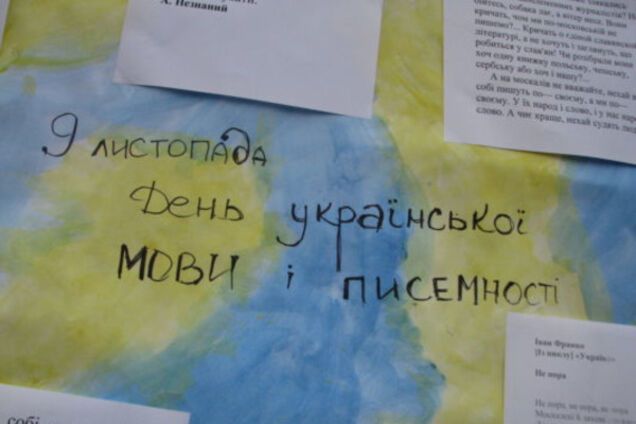 А. Незнаний
собака лає, а вітер несе. Вони
кричать, чом ми по-московській не
пишемо?... Кричать о єдиной славянской
літературі, а не хотять і заглянуть, що
робиться у слав'ян! Чи розібрали вони
хоч одну книжку польську, чешську,
сербську або хоч і нашу?...
А на москалів не вважайте, нехай
собі пишуть по— своєму, а ми по—
своєму. У їх народ і слово, і у нас
слово. А чиє краще, нехай судять
9 листопада
День української
мови і писемності
Іван Франко
[Із циклу] «Україна»
Не пора
Не пора, не пора, не пора
собі